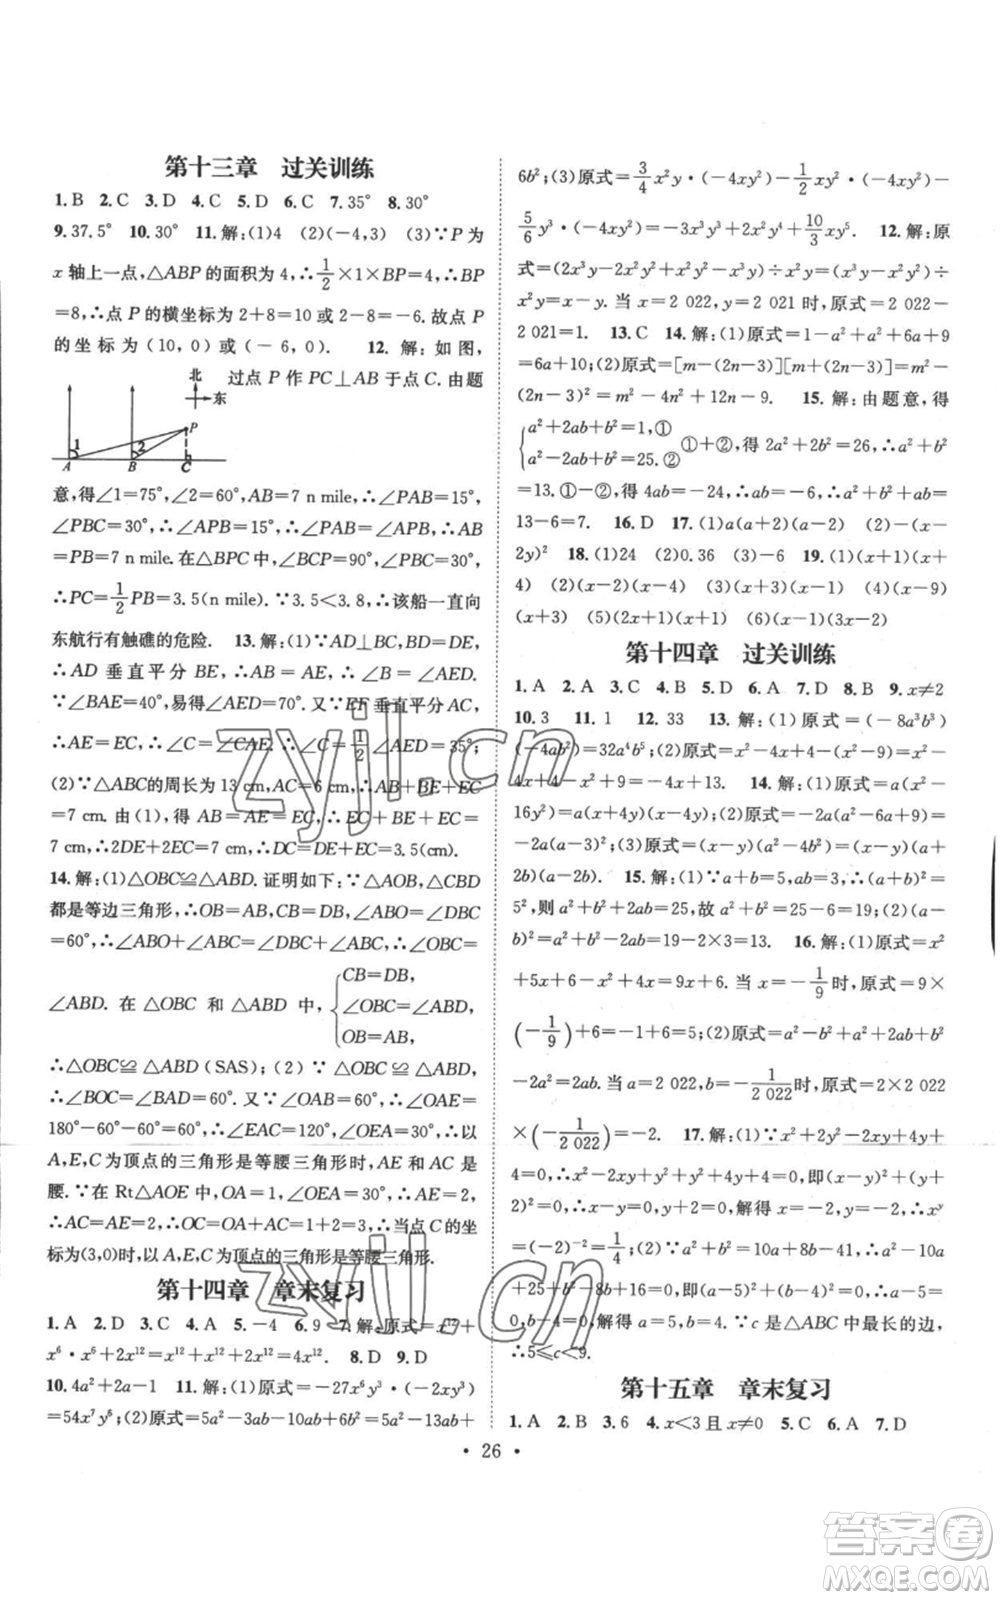 第十三章 过关训练
1. B 2. C 3. D 4. C 5. D 6. C 7. 35° 8. 30°
9. 37.5° 10. 30° 11. 解:(1)4 (2)(-4,3) (3)∵P 为
x 轴上一点,△ABP 的面积为 4,∴1/2×1×BP=4,∴BP
=8,∴点 P 的横坐标为 2+8=10 或 2-8=-6. 故点 P
的坐标为(10,0)或(-6,0). 12. 解:如图,
过点 P 作 PC⊥AB 于点 C. 由题
北
东
1 2 P
A B C
意,得∠1=75°,∠2=60°,AB=7 n mile,∴∠PAB=15°,
∠PBC=30°,∴∠APB=15°,∴∠PAB=∠APB,∴AB
=PB=7 n mile. 在△BPC 中,∠BCP=90°,∠PBC=30°,
∴PC=1/2PB=3.5(n mile). ∵3.5<3.8,∴该船一直向
东航行有触礁的危险. 13. 解:(1)∵AD⊥BC,BD=DE,
∴AD 垂直平分 BE,∴AB=AE,∴∠B=∠AED.
∵∠BAE=40°,∴∠AED=70°. 又∵EF 垂直平分 AC,
∴AE=EC,∴∠C=∠CAE,∴∠C=1/2∠AED=35°;
(2)∵△ABC 的周长为 13 cm,AC=6 cm,∴AB+BE+EC
=7 cm. 由(1),得 AB=AE=EC,∴DE+EC+DE+EC=
7 cm,∴2DE+2EC=7 cm,∴DE+EC=3.5(cm).
14. 解:(1)△OBC≌△ABD. 证明如下:∵△AOB,△CBD
都是等边三角形,∴OB=AB,CB=DB,∠ABO=∠DBC
=60°,∴∠ABO+∠ABC=∠DBC+∠ABC,∴∠OBC=
∠ABD. 在 △OBC 和 △ABD 中,{CB=DB,
∠OBC=∠ABD,
OB=AB,
∴△OBC≌△ABD(SAS);(2)∵△OBC≌△ABD,
∴∠BOC=∠BAD=60°. 又∵∠OAB=60°,∴∠OAE=
180°-60°-60°=60°,∴∠EAC=120°,∠OEA=30°,∴以
A,E,C 为顶点的三角形是等腰三角形时,AE 和 AC 是
腰. ∵在 Rt△AOE 中,OA=1,∠OEA=30°,∴AE=2,
∴AC=AE=2,∴OC=OA+AC=1+2=3,∴当点 C 的坐
标为(3,0)时,以 A,E,C 为顶点的三角形是等腰三角形.
第十四章 章末复习
1. A 2. D 3. C 4. A 5. -4 6. 9 7. 解:原式=x¹²+
x⁶·x⁶+2x¹²=x¹²+x¹²+2x¹²=4x¹². 8. D 9. D
10. 4a²+2a-1 11. 解:(1)原式=-27x⁶y³·(-2xy³)
=54x⁷y⁶;(2)原式=5a²-3ab-10ab+6b²=5a²-13ab+
6b²;(3)原式=3/4x²y·(-4xy²)-1/2xy²·(-4xy²)-
5/6y³·(-4xy²)=-3x³y³+2x²y⁴+10/3xy⁵. 12. 解:原
式=(2x³y-2x²y²+x²y²-x³y)÷x²y=(x³y-x²y²)÷
x²y=x-y. 当 x=2 022,y=2 021 时,原式=2 022-
2 021=1. 13. C 14. 解:(1)原式=1-a²+a²+6a+9=
6a+10;(2)原式=[m-(2n-3)][m+(2n-3)]=m²-
(2n-3)²=m²-4n²+12n-9. 15. 解:由题意,得
{a²+2ab+b²=1,①
a²-2ab+b²=25.② ①+②,得 2a²+2b²=26,∴a²+b²
=13. ①-②,得 4ab=-24,∴ab=-6,∴a²+b²+ab=
13-6=7. 16. D 17. (1)a(a+2)(a-2) (2)-(x-
2y)² 18. (1)24 (2)0.36 (3)-6 19. (1)(x+1)(x+
4) (2)(x-2)(x-4) (3)(x+4)(x-3) (4)(x-9)
(x+3) (5)(2x+1)(x+1) (6)(x-1)(3x-2)
第十四章 过关训练
1. A 2. A 3. C 4. B 5. D 6. A 7. D 8. B 9. x≠2
10. 3 11. 1 12. 33 13. 解:(1)原式=(-8a³b³)·
(-4ab²)=32a⁴b⁵;(2)原式=x²-4x+4-(x²-9)=x²-
4x+4-x²+9=-4x+13. 14. 解:(1)原式=a(x²-
16y²)=a(x+4y)(x-4y);(2)原式=-2a(a²-6a+9)=
-2a(a-3)²;(3)原式=(a-b)(a²-4)=(a-b)(a+2)
(a-2). 15. 解:(1)∵a+b=5,∴(a+b)²=a²+2ab+b²=
5²,则 a²+b²+2ab=25,故 a²+b²=25-6=19;(2)(a-
b)²=a²+b²-2ab=19-2×3=13. 16. 解:(1)原式=x²
+5x+6-x²+4x=9x+6. 当 x=-1/9时,原式=9×
(-1/9)+6=-1+6=5;(2)原式=a²-b²+a²+2ab+b²
-2a²=2ab. 当 a=2 022,b=-1/2 022时,原式=2×2 022
×(-1/2 022)=-2. 17. 解:(1)∵x²+2y²-2xy+4y+
4=0,∴x²+y²-2xy+y²+4y+4=0,即(x-y)²+(y+
2)²=0,∴x-y=0,y+2=0,解得 x=-2,y=-2,∴xʸ
=(-2)⁻²=1/4;(2)∵a²+b²-10a-8b+41=0,∴a²-10a
+25+b²-8b+16=0,即(a-5)²+(b-4)²=0,∴a-5=
0,b-4=0,解得 a=5,b=4. ∵c 是△ABC 中最长的边,
∴5≤c<9.
第十五章 章末复习
1. A 2. B 3. 6 4. x<3 且 x≠0 5. C 6. A 7. D
· 26 ·
zyjl.cn
zyjl.cn
答案圈
MXQE.COM